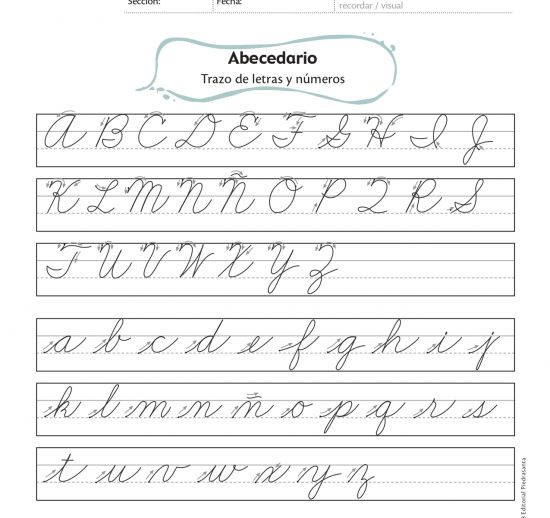 Sección:
Fecha:
recordar / visual
Abecedario
Trazo de letras y números
A B C D E F G H I J
K L M N Ñ O P Q R S
T U V W X Y Z
a b c d e f g h i j
k l m n ñ o p q r s
t u v w x y z
Editorial Piedrasanta